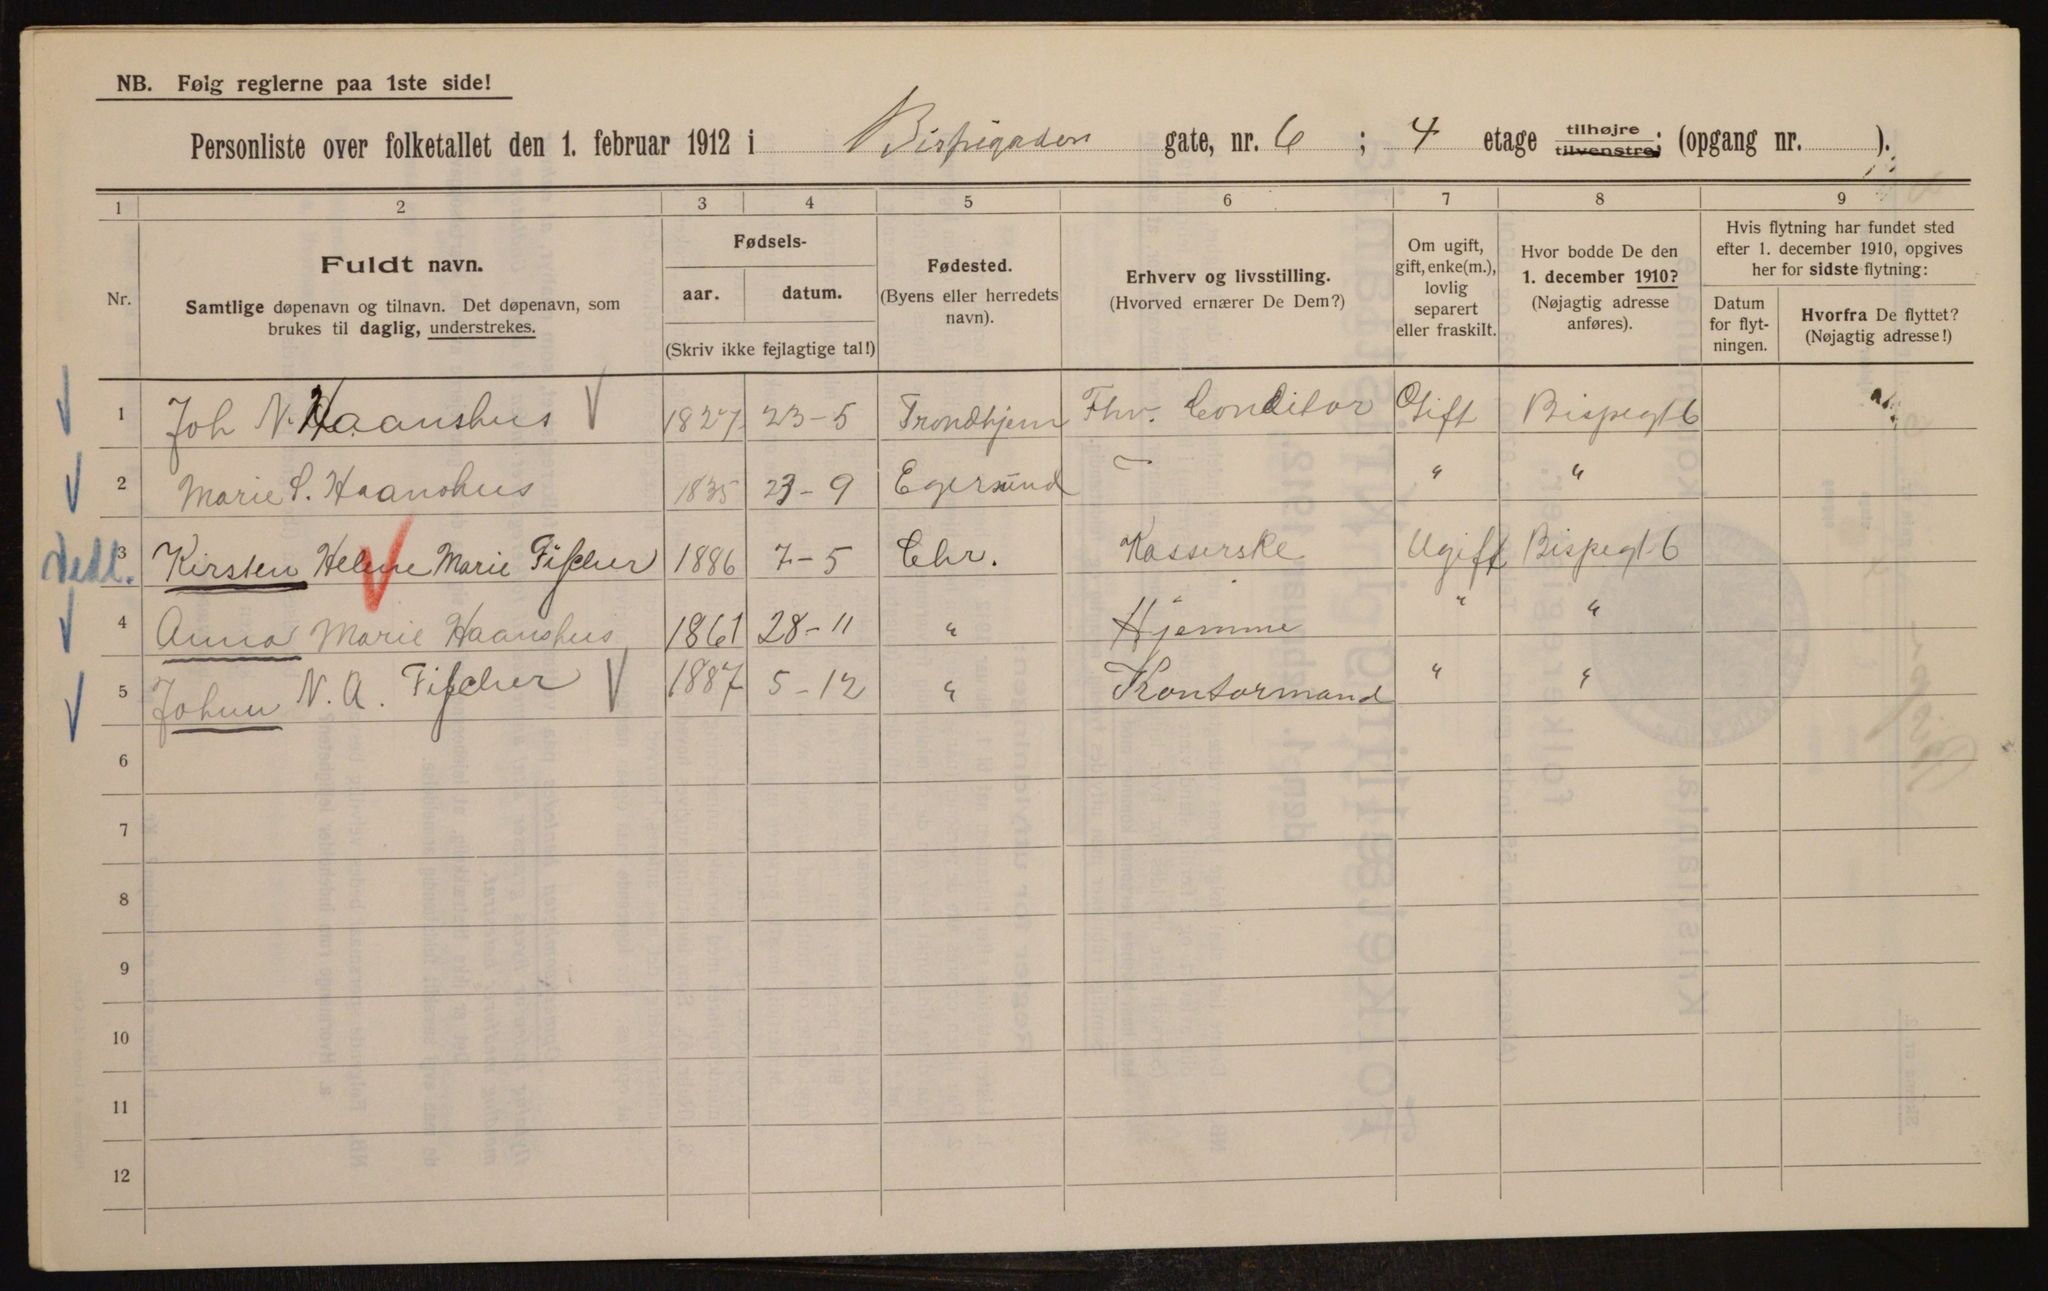 NB. Følg reglerne paa 1ste side!
Personliste over folketallet den 1. februar 1912 i Bispegaden gate, nr. 6 ; 4 etage tilhøjre tilvenstre; (opgang nr. ).
1 2 3 4 5 6 7 8 9
Nr.
Fuldt navn.
Samtlige døpenavn og tilnavn. Det døpenavn, som
brukes til daglig, understrekes.
Fødsels-
aar. datum.
(Skriv ikke fejlagtige tal!)
Fødested.
(Byens eller herredets
navn).
Erhverv og livsstilling.
(Hvorved ernærer De Dem?)
Om ugift,
gift, enke(m.),
lovlig
separert
eller fraskilt.
Hvor bodde De den
1. december 1910?
(Nøjagtig adresse
anføres).
Hvis flytning har fundet sted
efter 1. december 1910, opgives
her for sidste flytning:
Datum
for flyt-
ningen.
Hvorfra De flyttet?
(Nøjagtig adresse!)
1 Joh N. Haanshus 1827 23-5 Trondhjem Fhv. Conditor Gift Bispegt 6
2 Marie S. Haanshus 1835 23-9 Egersund " "
3 Kirsten Helene Marie Fischer 1886 7-5 Chr. Kasserske Ugift Bispegt 6
4 Anna Marie Haanshus 1861 28-11 " Hjemme " "
5 Johan N. A. Fischer 1887 5-12 " Kontormand " "
6
7
8
9
10
11
12